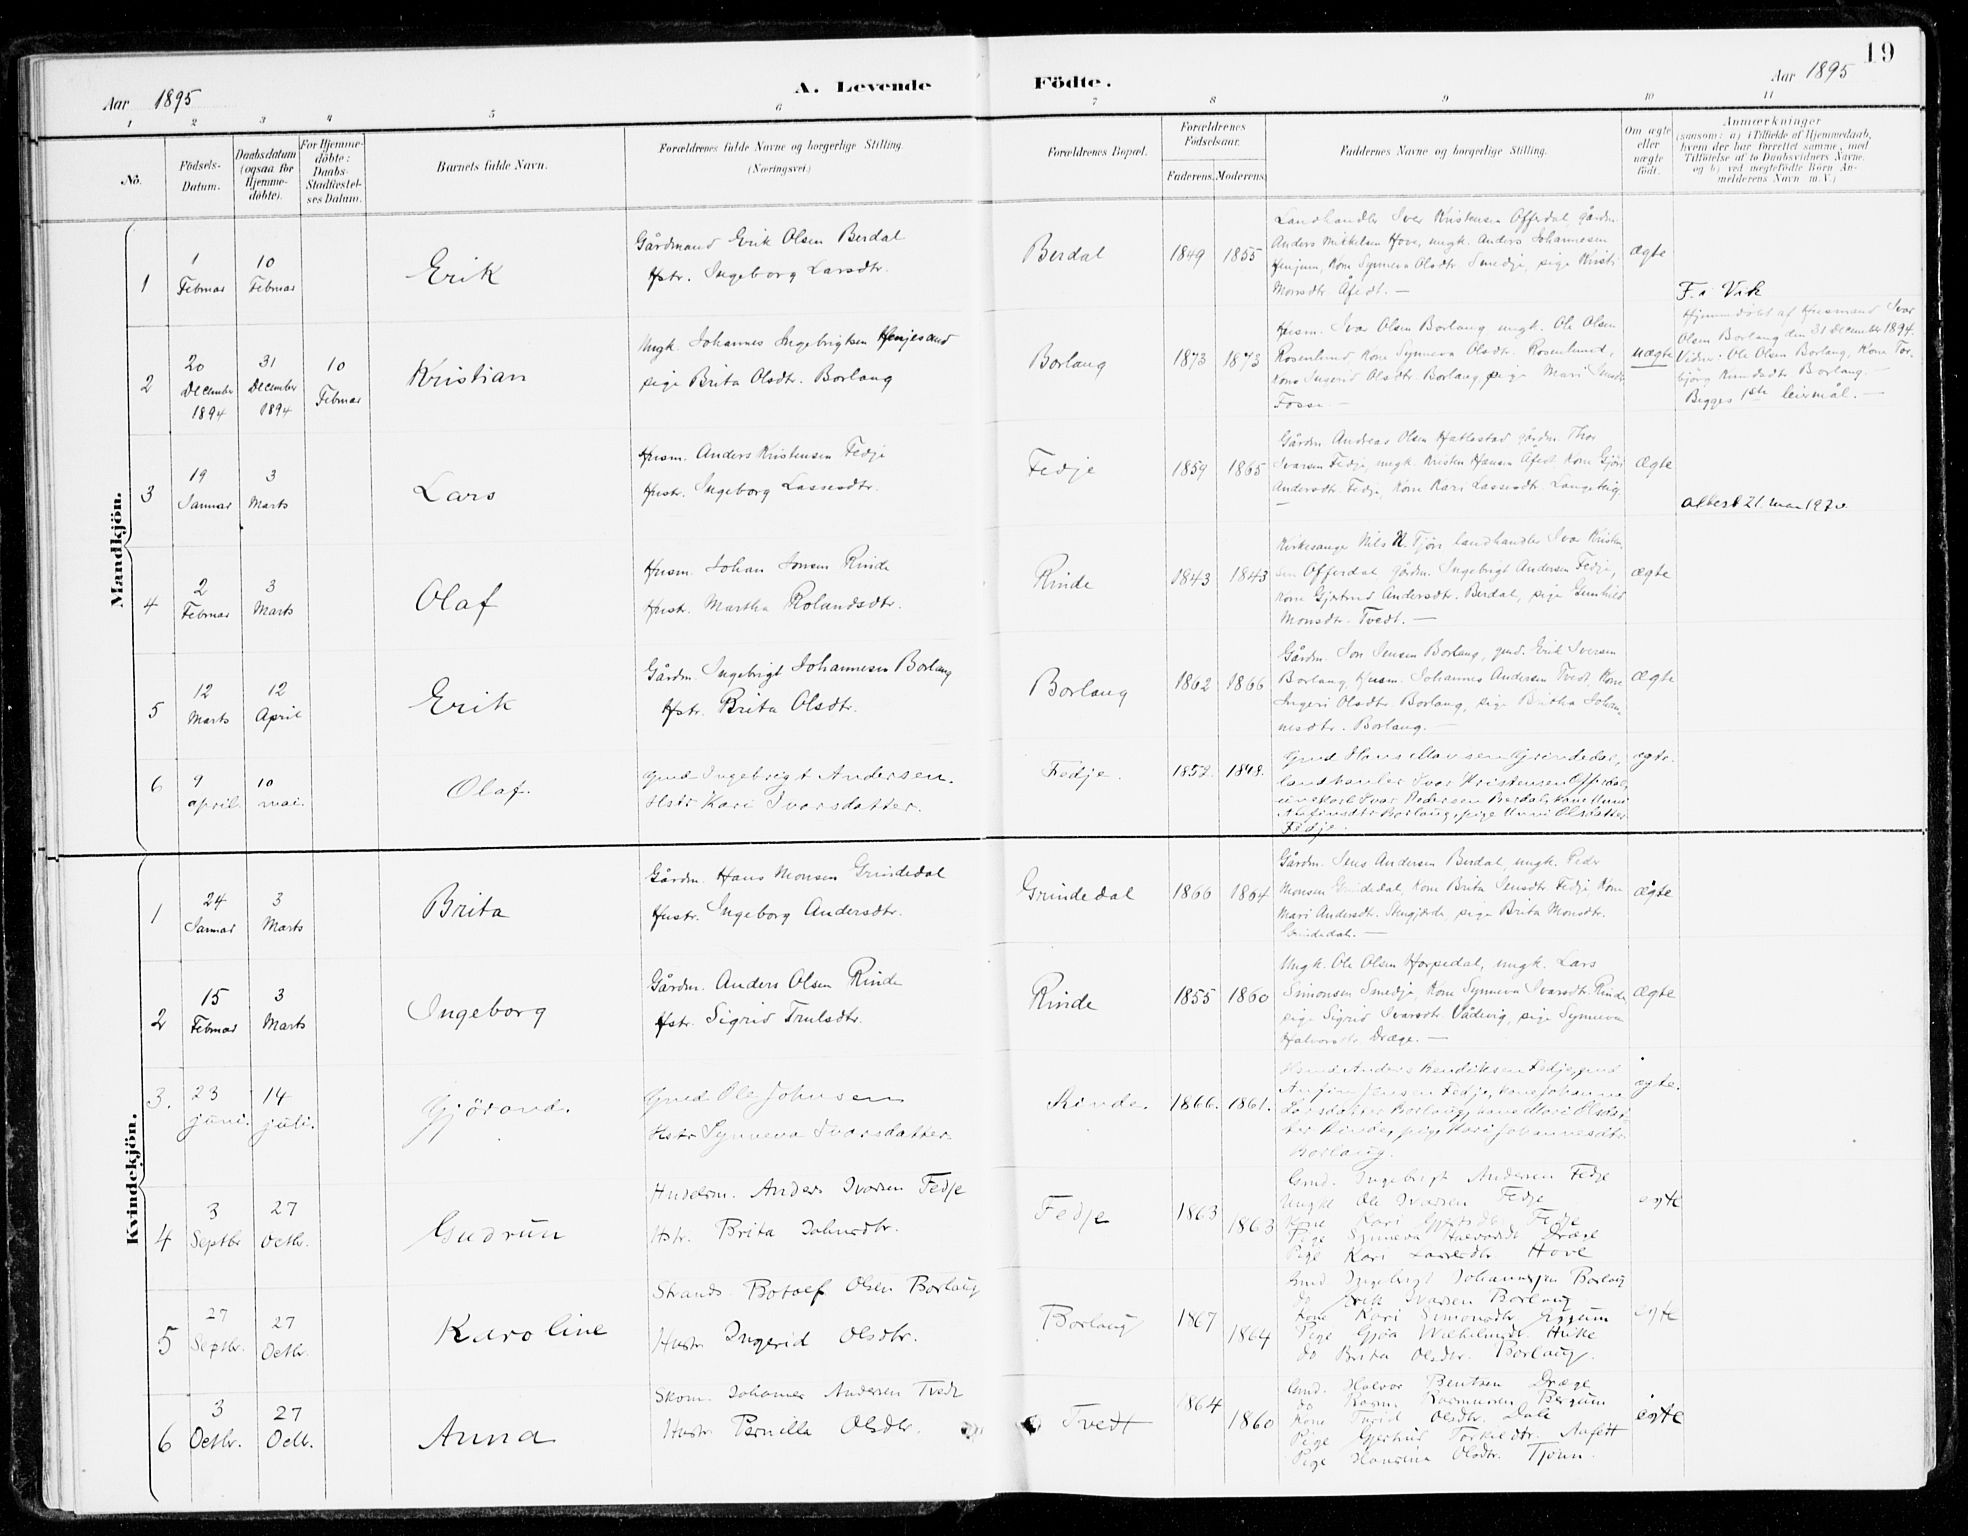 19
Aar 1895
A. Levende Födte.
Aar 1895
1 2 3 4 5 6 7 8 9 10 11
No.
Födsels-Datum.
Daabsdatum (ogsaa for Hjemme-döbte).
For Hjemme-döbte: Daabs-Stadfæstel-ses Datum.
Barnets fulde Navn.
Forældrenes fulde Navne og borgerlige Stilling.
(Næringsvei.)
Forældrenes Bopæl.
Forældrenes Födselsaar.
Faderens. Moderens.
Faddernes Navne og borgerlige Stilling.
Om ægte eller uægte født.
Anmærkninger
(saasom: a) i Tilfælde af Hjemmedaab,
hvem der har forrettet samme, med
Tilföielse af to Daabsvidners Navne,
og b) ved uegtefödte Börn An-
melderens Navn m. V.)
Mandkjön.
1
1 Februar
10 Februar
Erik
Gårdmand Erik Olsen Berdal
Hstr. Ingeborg Larsdtr.
Berdal
1849 1855
Landhandler Iver Kristensen Offerdal gårdm.
Anders Mikkelsen Hove, ungk. Anders Johannesen
Henjum, Kone Synneva Olsdtr Smedje, pige Kristi
Monsdtr Åfedt. —
ægte
2
20 December 1894
31 December 1894
10 Februar
Kristian
Ungk. Johannes Ingebrigtsen Henjesand
pige Brita Olsdtr. Borlaug
Borlaug
1873 1873
Husm. Ivar Olsen Borlaug ungk. Ole Olsen
Rosenlund, Kone Synneva Olsdtr. Rosenlund,
Kone Ingerid Olsdtr Borlaug, pige Mari
Fosse. —
uægte
F. i Vik
Hjemmedöbt af Husmand Ivar
Olsen Borlaug den 31 December 1894.
Vidner: Ole Olsen Borlaug, Kone Tor-
björg Knudsdtr Borlaug. —
Begges 1ste leiermål. —
3
19 Januar
3 Marts
Lars
Husm. Anders Kristensen Fedje
Hustr. Ingeborg Lassesdtr.
Fedje
1859 1865
Gårdm. Andreas Olsen Hatlestad gårdm Thor
Ivarsen Fedje, ungk. Kristen Hansen Åfedt, Kone Gjöri
Andersdtr. Fedje, Kone Kari Lassesdtr. Langeteig.
—
ægte
attest 21.
4
2 Februar
3 Marts
Olaf
Husm. Johan Jonsen Rinde
Hustr. Martha Rolandsdtr.
Rinde
1843 1843
Kirkesanger Nils N. Tjön landhandler Ivar Kristen-
sen Offerdal gårdm. Ingebrigt Andersen Fedje,
Kone Gjertrud Andersdtr. Berdal, pige Gunhild
Monsdtr. Tvedt. —
ægte
5
12 Marts
12 April
Erik
Gårdm. Ingebrigt Johannesen Borlaug
Hstr. Brita Olsdtr.
Borlaug
1862 1866
Gårdm. Jon Jensen Borlaug, gmd. Erik Iversen
Borlaug Husm. Johannes Andersen Tvedt Kone
Ingeri Olsdtr. Borlaug, pige Britha Johan-
nesdtr. Borlaug. —
ægte
6
9 april.
10 mai.
Olaf.
Gmd Ingebrigt Andersen.
Hstr Kari Ivarsdatter.
Fedje.
1852. 1848.
Gmd Hans Monsen Grindedal,
landhandler Ivar Kristensen Offerdal,
ungkarl Ivar Pedersen Berdal, Kone Unni
Borlaug, pige Unni Olsdatter
Fedje.
ægte.
Kvindekjön.
1
24 Januar
3 Marts
Brita
Gårdm. Hans Monsen Grindedal
Hustr. Ingeborg Andersdtr.
Grindedal
1866 1864
Gårdm. Jens Andersen Berdal, ungk. Peder
Monsen Grindedal, Kone Brita Jensdtr Fedje, Kone
Mari Andersdtr. Stengjerde, pige Brita Monsdtr.
Grindedal. —
ægte
2
15 Februar
3 Marts
Ingeborg
Gårdm. Anders Olsen Rinde
Hstr. Sigrid Trulsdtr.
Rinde
1855 1860
Ungk. Ole Olsen Horpedal, ungk. Lars
Simonsen Smedje, Kone Synneva Ivarsdtr. Rinde
pige Sigrid Ivarsdtr. Vådevig, pige Synneva
Halvorsdtr. Dræge. —
ægte
3.
23 juni.
14 juli.
Gjörond.
Gmd Ole Johnsen
Hstr Synneva Ivarsdatter
Rinde.
1866. 1861.
Anders Hendriksen Fedje, gmd
Anfin Jensen Fedje, kone Johanna
Larsdatter Borlaug, kone Mari Olsdat-
ter Rinde, pige Kari Johannesdtr
Borlaug.
ægte.
4
3 Septbr
27 Octbr.
Gudrun
Anders Ivarsen Fedje
Hstr. Brita Johnsdtr.
Fedje
1863 1863
Gmd. Ingebrigt Andersen Fedje
Ungk Ole Ivarsen Fedje
Kone Kari Fedje
Pige Synneva Halvorsdt Dræge
Pige Kari Larsesdtr Hove
egte
5
27 Septbr.
27 Octbr.
Karoline
Strands. Botolf Olsen Borlaug
Hustr Ingerid Olsdtr.
Borlaug
1867 1864
Gmd. Ingebrigt Johannesen Borlaug
do Erik Ivarsen Borlaug
Kone Kari Simonsdtr Eggum
Pige Gjöa Wilhelmsdtr. Huske
do Brita Olsdtr. Borlaug.
egte
6
3 Octbr.
27 Octb.
Anna
Skom. Johannes Andersen Tvedt
Hustr Pernilla Olsdtr.
Tvedt
1864 1860
Gmd. Halvor Bentsen Dræge
do Rasm. Rasmussen Bergum
Kone Turid Olsdtr. Dale
Pige Gjertrud Torkildtr. Aafett
Pige Hansina Olsdtr. Tjönn.
egte